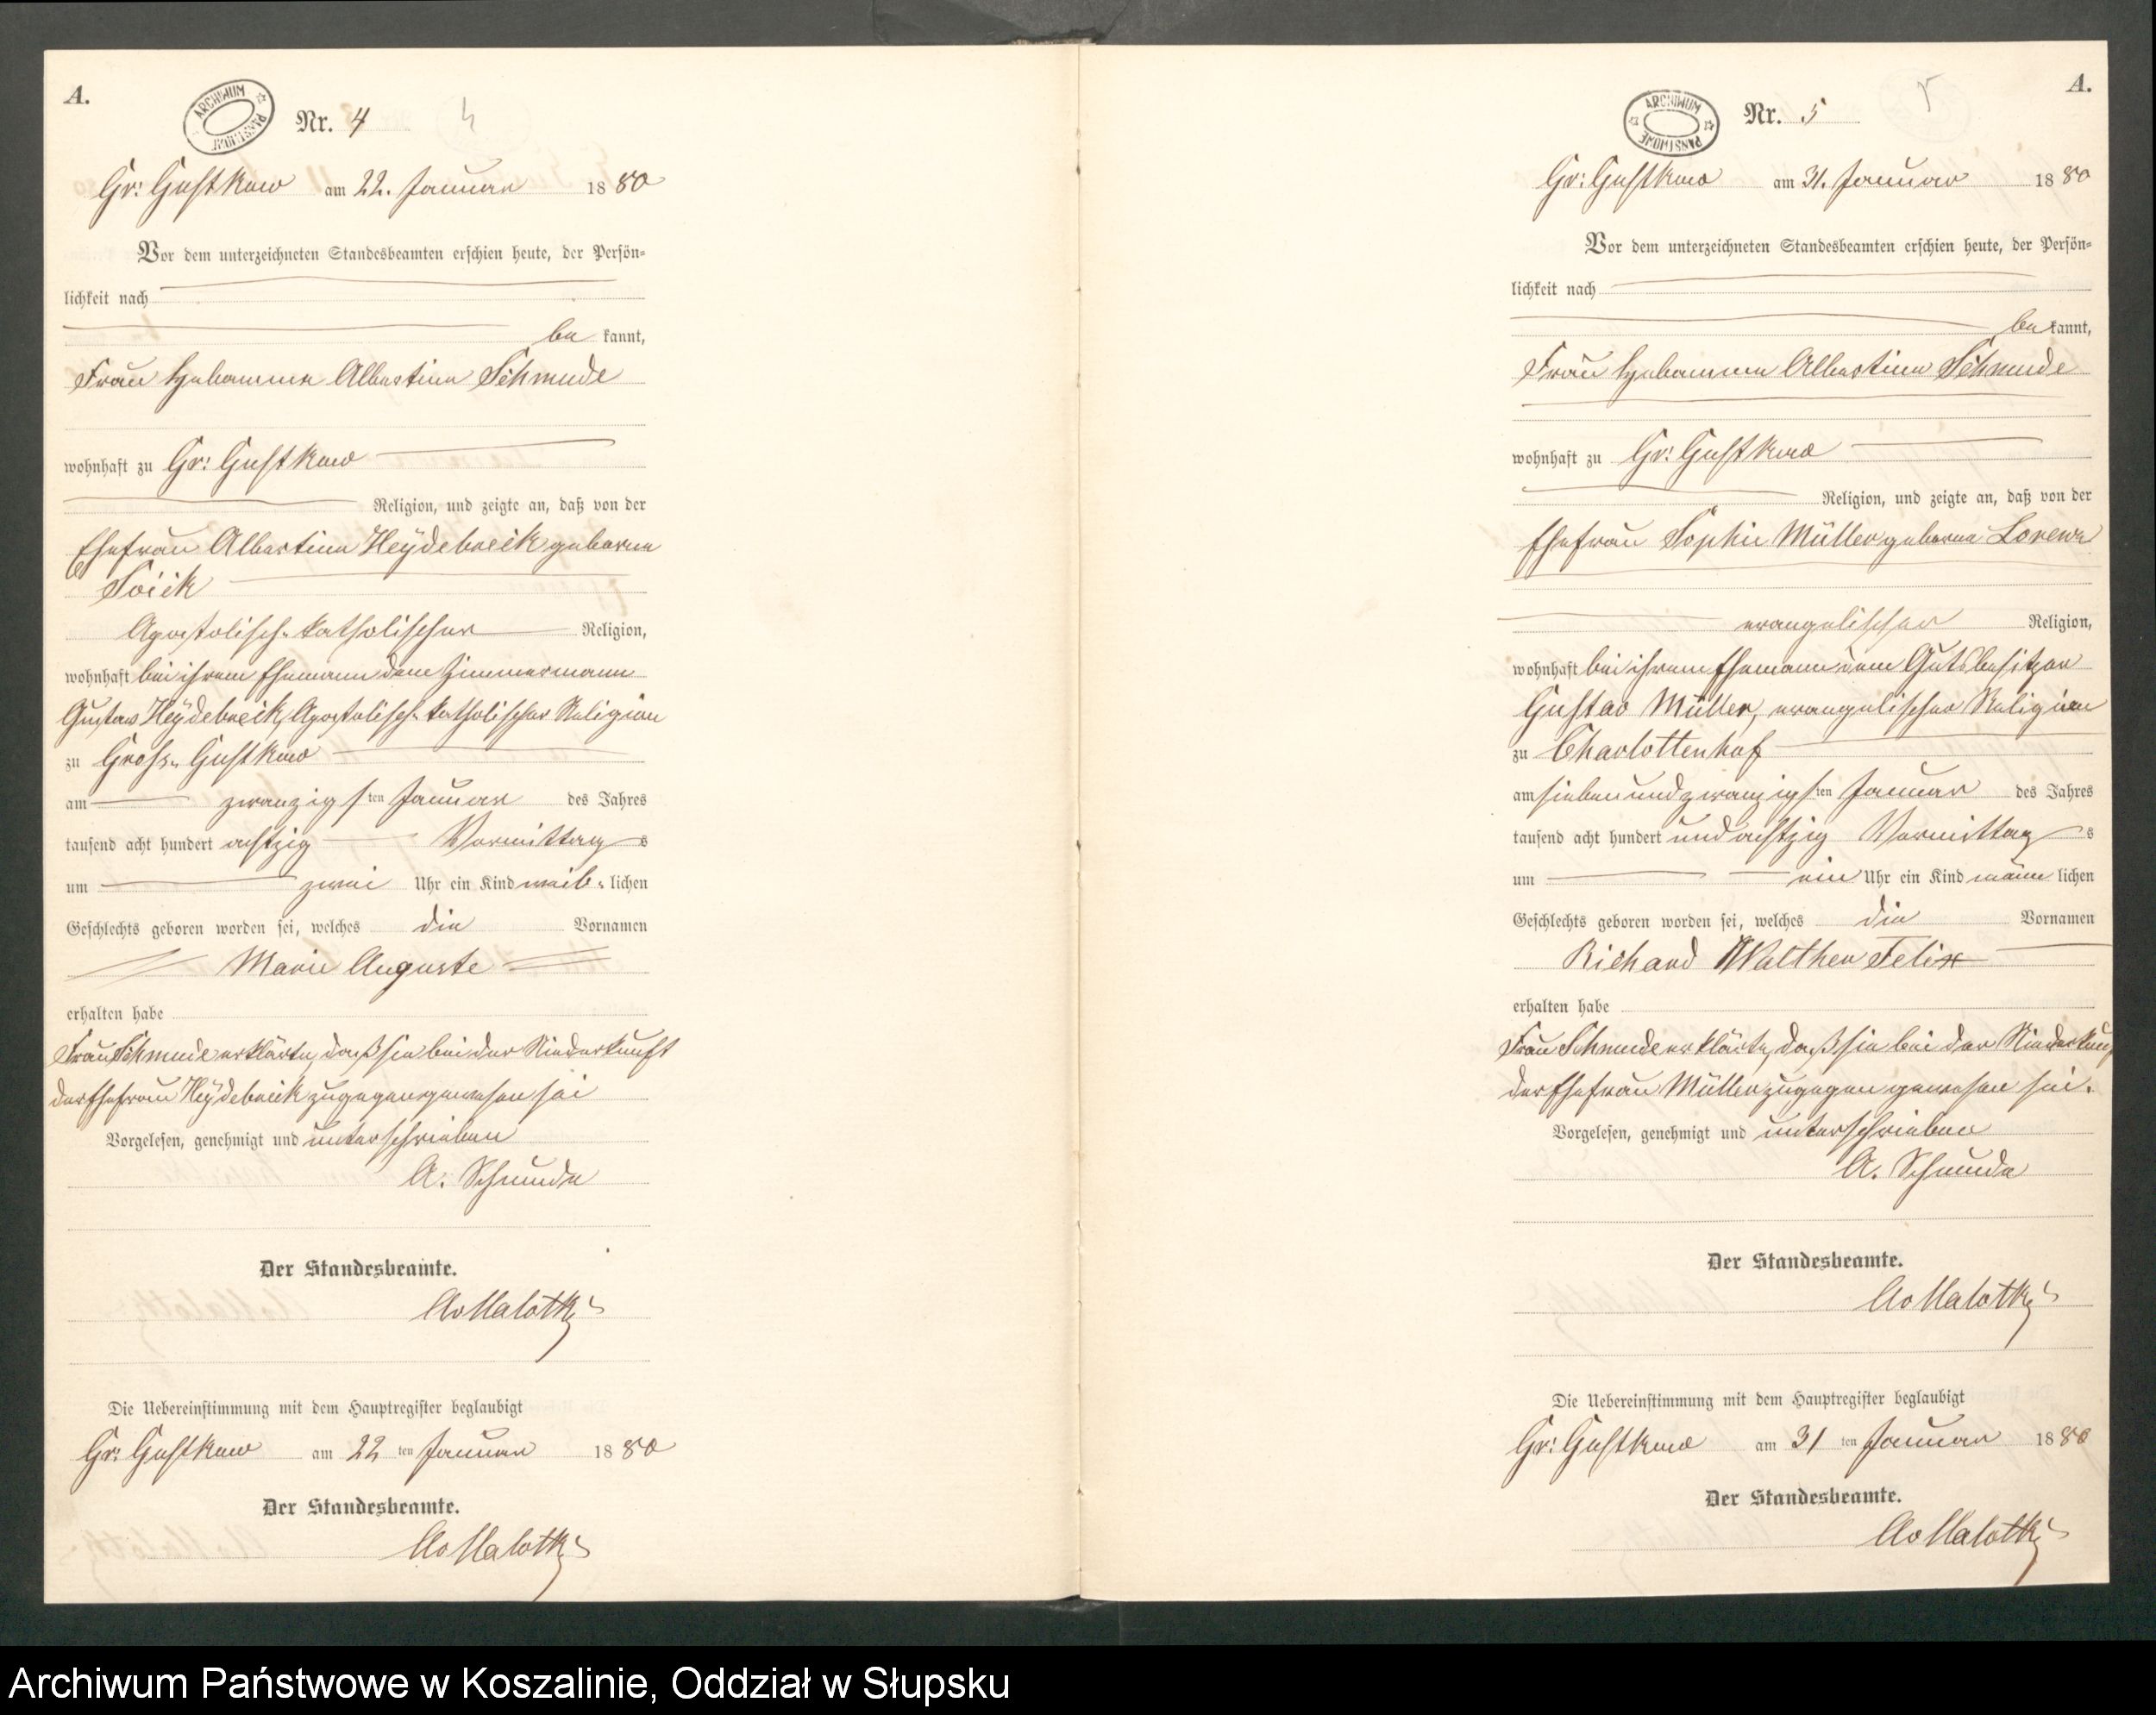 A.
ARCHIWUM PAŃSTWOWE
Nr. 4
4
Gr: Gustkow am 22. Januar 1880
Vor dem unterzeichneten Standesbeamten erschien heute, der Persön-
lichkeit nach
be kannt,
Frau Hebamme Albertine Schmude
wohnhaft zu Gr: Gustkow
Religion, und zeigte an, daß von der
Ehefrau Albertine Heydebreck geborne
Soick
Apostolisch-katholischer Religion,
wohnhaft bei ihrem Ehemann dem Zimmermann
Gustav Heydebreck, Apostolisch-katholischer Religion
zu Gross-Gustkow
am zwanzigsten Januar des Jahres
tausend acht hundert achtzig Vormittags
um zwei Uhr ein Kind weib-lichen
Geschlechts geboren worden sei, welches die Vornamen
Marie Auguste
erhalten habe
Frau Schmude erklärte, daß sie bei der Niederkunft
der Ehefrau Heydebreck zugegen gewesen sei
Vorgelesen, genehmigt und unterschrieben
A. Schmude
Der Standesbeamte.
Die Uebereinstimmung mit dem Hauptregister beglaubigt
Gr: Gustkow am 22 ten Januar 1880
Der Standesbeamte.
A.
ARCHIWUM PAŃSTWOWE
Nr. 5
5
Gr: Gustkow am 31. Januar 1880
Vor dem unterzeichneten Standesbeamten erschien heute, der Persön-
lichkeit nach
be kannt,
Frau Hebamme Albertine Schmude
wohnhaft zu Gr: Gustkow
Religion, und zeigte an, daß von der
Ehefrau Sophie Müller geborne Lorenz
evangelischer Religion,
wohnhaft bei ihrem Ehemann dem Gutsbesitzer
Gustav Müller, evangelischer Religion
zu Charlottenhof
am siebenundzwanzigsten Januar des Jahres
tausend acht hundert und achtzig Vormittags
um ein Uhr ein Kind männlichen
Geschlechts geboren worden sei, welches die Vornamen
Richard Walther Felix
erhalten habe
Frau Schmude erklärte, daß sie bei der Niederkunft
der Ehefrau Müller zugegen gewesen sei.
Vorgelesen, genehmigt und unterschrieben
A. Schmude
Der Standesbeamte.
Die Uebereinstimmung mit dem Hauptregister beglaubigt
Gr: Gustkow am 31 ten Januar 1880
Der Standesbeamte.
Archiwum Państwowe w Koszalinie, Oddział w Słupsku